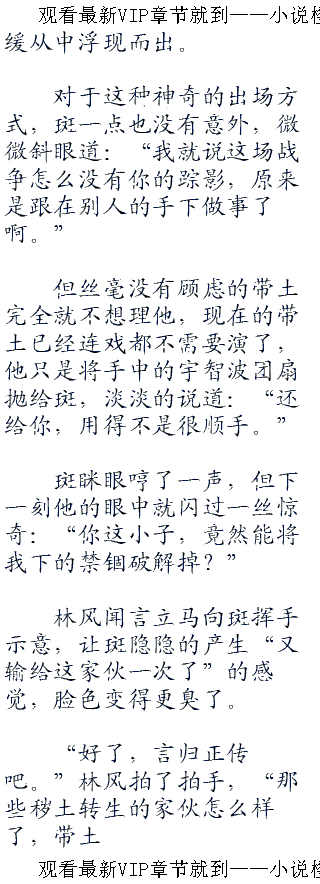 观看最新VIP章节就到——小说楼
缓从中浮现而出。
对于这种神奇的出场方
式，斑一点也没有意外，微
微斜眼道：“我就说这场战
争怎么没有你的踪影，原来
是跟在别人的手下做事了
啊。”
但丝毫没有顾虑的带土
完全就不想理他，现在的带
土已经连戏都不需要演了，
他只是将手中的宇智波团扇
抛给斑，淡淡的说道：“还
给你，用得不是很顺手。”
斑眯眼哼了一声，但下
一刻他的眼中就闪过一丝惊
奇：“你这小子，竟然能将
我下的禁锢破解掉？”
林风闻言立马向斑挥手
示意，让斑隐隐的产生“又
输给这家伙一次了”的感
觉，脸色变得更臭了。
“好了，言归正传
吧。”林风拍了拍手，“那
些秽土转生的家伙怎么样
了，带土
观看最新VIP章节就到——小说楼